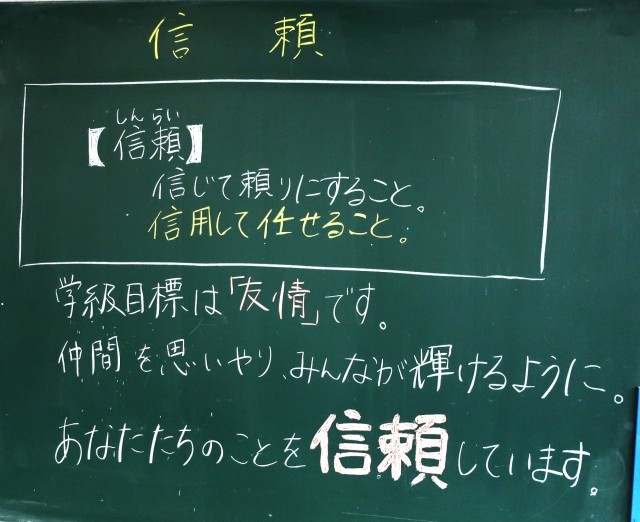 信 頼
しんらい
【信頼】
信じて頼りにすること。
信用して任せること。
学級目標は「友情」です。
仲間を思いやり、みんなが輝けるように。
あなたたちのことを信頼しています。